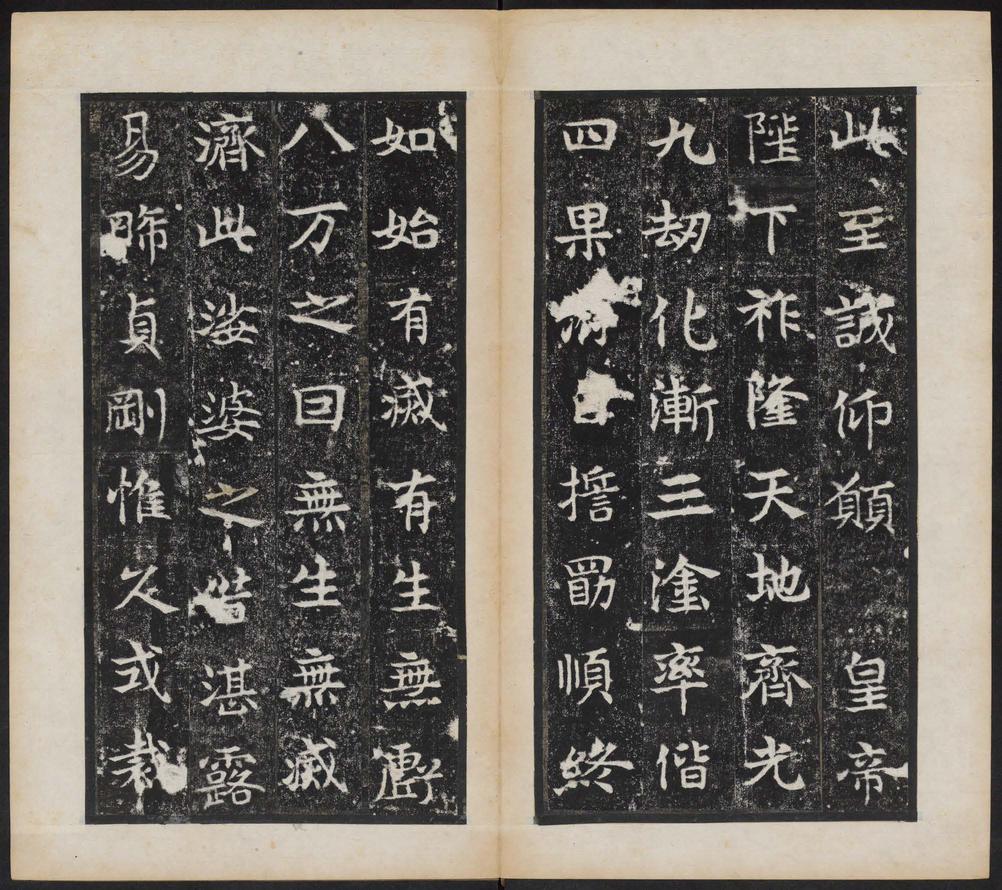 此至誠仰願皇帝
陛下祚隆天地齊光
九劫化漸三塗率偕
四果日擔勗順終
如始有滅有生無虧
八万之回無生無滅
濟此娑婆之皆湛露
易晞貞剛惟久式裁